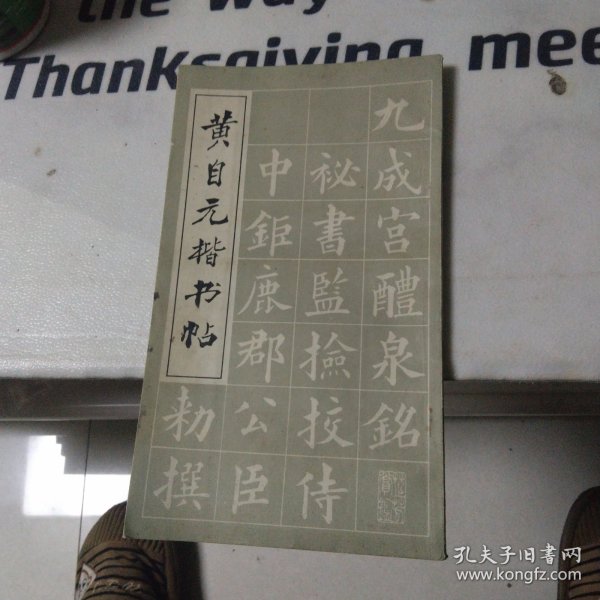 the way
Thanksgiving meet
黄自元楷书帖
九成宫醴泉銘
祕書監撿挍侍
中鉅鹿郡公臣
勑撰
孔夫子旧书网
www.kongfz.com